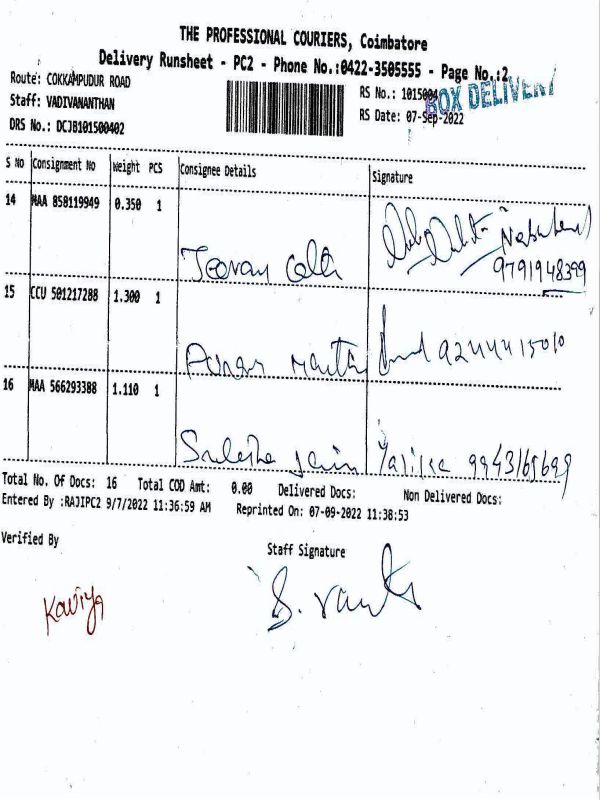 THE PROFESSIONAL COURIERS, Coimbatore
Delivery Runsheet - PC2 - Phone No.:0422-3505555 - Page No.:2
Route: COKKAMPUDUR ROAD
RS No.: 1015004
BOX DELIVERY
Staff: VADIVANANTHAN
RS Date: 07-Sep-2022
DRS No.: DCJB101500402
S No Consignment No Weight PCS Consignee Details Signature
14 MAA 858119949 0.350 1
9791948399
15 CCU 501217288 1.300 1
9244415010
16 MAA 566293388 1.110 1
Jain 9943165699
Total No. Of Docs: 16 Total COD Amt: 0.00 Delivered Docs: Non Delivered Docs:
Entered By :RAJIPC2 9/7/2022 11:36:59 AM Reprinted On: 07-09-2022 11:38:53
Verified By
Staff Signature
Kaviya